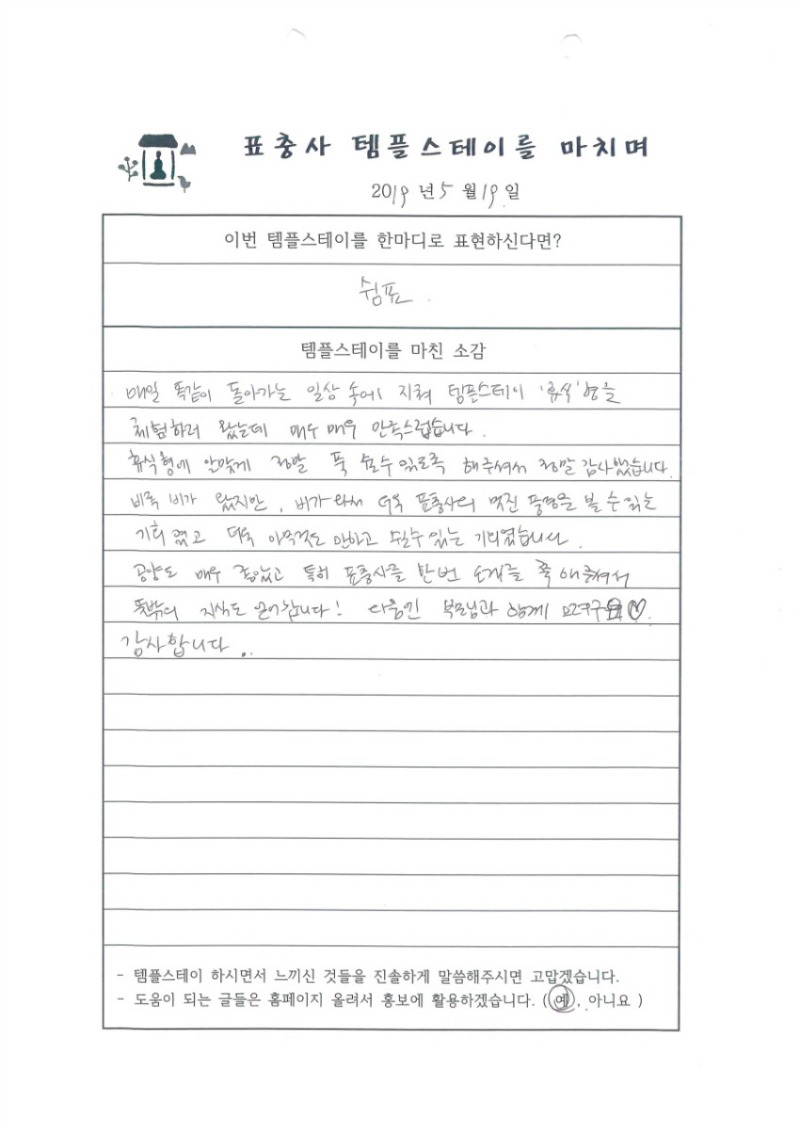 표충사 템플스테이를 마치며
2019 년 5 월 19 일
이번 템플스테이를 한마디로 표현하신다면?
쉼표.
템플스테이를 마친 소감
매일 똑같이 돌아가는 일상 속에 지쳐 템플스테이 '휴식'형을
체험하러 왔는데 매우 매우 만족스럽습니다.
휴식형에 알맞게 정말 푹 쉴수있도록 해주셔서 정말 감사했습니다.
비록 비가 왔지만, 비가와서 더욱 표충사의 멋진 풍경을 볼 수 있는
기회였고 더욱 아무것도 안하고 쉴수있는 기회였습니다.
공양도 매우 좋았고 특히 표충사를 한번 소개를 쭉 해주셔서
뜻밖의 지식도 얻어갑니다! 다음엔 부모님과 함께 ♡.
감사합니다..
- 템플스테이 하시면서 느끼신 것들을 진솔하게 말씀해주시면 고맙겠습니다.
- 도움이 되는 글들은 홈페이지 올려서 홍보에 활용하겠습니다. ( 예, 아니요 )